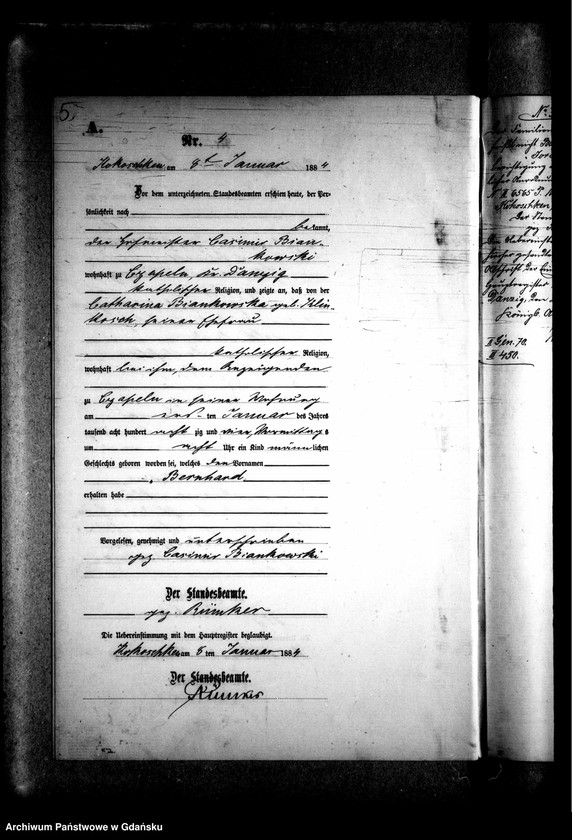 5.
A.
Nr. 4
Hokoschken am 8ten Januar 1884
Vor dem unterzeichneten Standesbeamten erschien heute, der Per-
sönlichkeit nach
bekannt,
der Hofmeister Casimir Bian-
kowski
wohnhaft zu Czapeln, Kr. Danzig
katholischer Religion, und zeigte an, daß von der
Catharina Biankowska geb. Klin-
kosch, seiner Ehefrau
katholischer Religion,
wohnhaft bei ihm, dem Anzeigenden
zu Czapeln in seiner Wohnung
am ten Januar des Jahres
tausend acht hundert acht zig und vier, Vormittags
um acht Uhr ein Kind männlichen
Geschlechts geboren worden sei, welches den Vornamen
Bernhard
erhalten habe
Vorgelesen, genehmigt und unterschrieben
gez. Casimir Biankowski
Der Standesbeamte.
gez. Rümker
Die Uebereinstimmung mit dem Hauptregister beglaubigt.
Hokoschken am 8 ten Januar 1884
Der Standesbeamte.
Rümker
No.
Hokoschken
Der
Danzig, den
Königl.
II Gen. 70.
II 450.
Archiwum Państwowe w Gdańsku